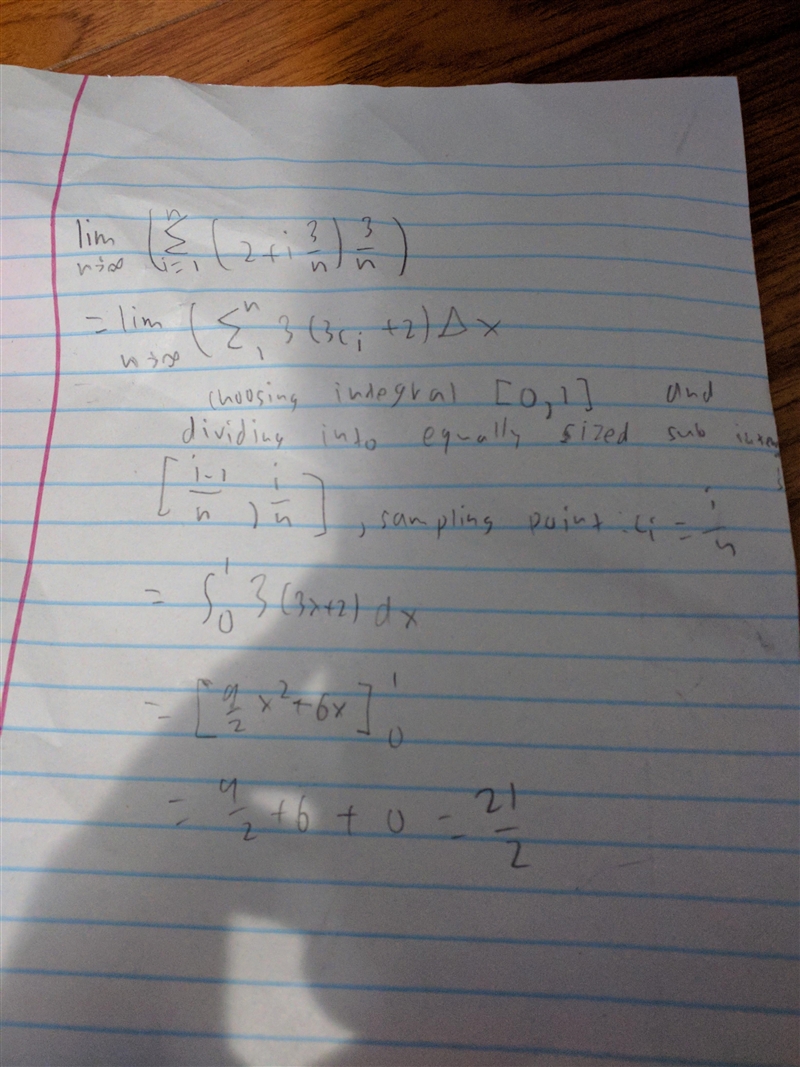 lim n→∞ ( Σ i=1 n ( 2 + i 3/n ) 3/n )
= lim n→∞ ( Σ 1 n 3 (3ci + 2) Δx
choosing integral [0,1] and
dividing into equally sized sub
[ i-1/n , i/n ] , sampling point : ci = i/n
= ∫ 0 1 3 (3x+2) dx
= [ 9/2 x² + 6x ] 0 1
= 9/2 + 6 + 0 = 21/2